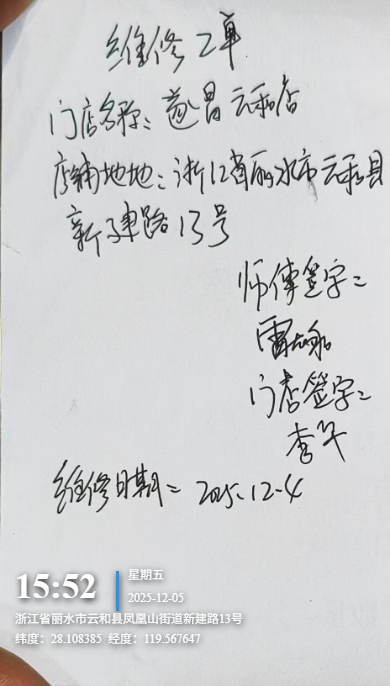 维修工单
门店名称：遂昌云和店
店铺地地：浙江省丽水市云和县
新建路13号
师傅签字：
雷
门店签字：
李
维修日期：2025.12-4
15:52
星期五
2025-12-05
浙江省丽水市云和县凤凰山街道新建路13号
纬度：28.108385 经度：119.567647